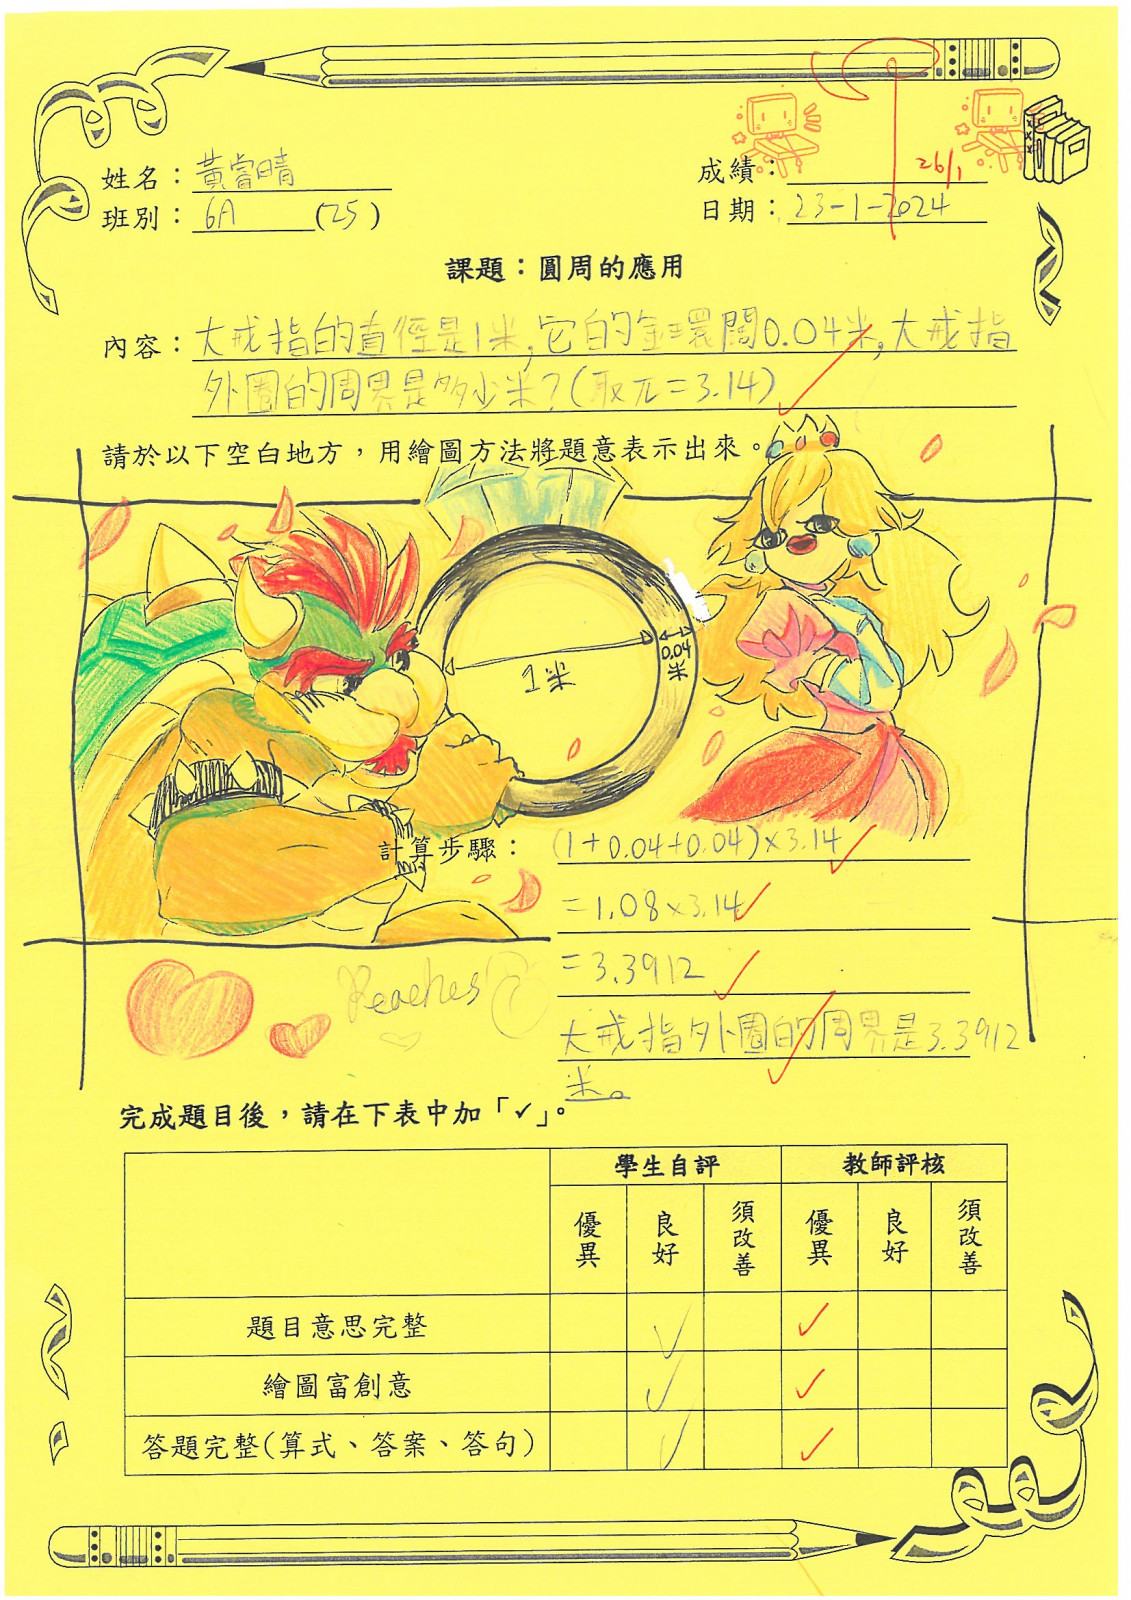 姓名：黃睿晴
成績：26/1
班別：6A (25)
日期：23-1-2024
課題：圓周的應用
內容：大戒指的直徑是1米，它的金環闊0.04米，大戒指
外圈的周界是多少米？(取π=3.14)
請於以下空白地方，用繪圖方法將題意表示出來。
1米
0.04
米
計算步驟：(1+0.04+0.04)×3.14
=1.08×3.14
=3.3912
大戒指外圈的周界是3.3912
米。
Peaches
完成題目後，請在下表中加「✓」。
學生自評 教師評核
優異 良好 須改善 優異 良好 須改善
題目意思完整 ✓ ✓
繪圖富創意 ✓ ✓
答題完整(算式、答案、答句) ✓ ✓